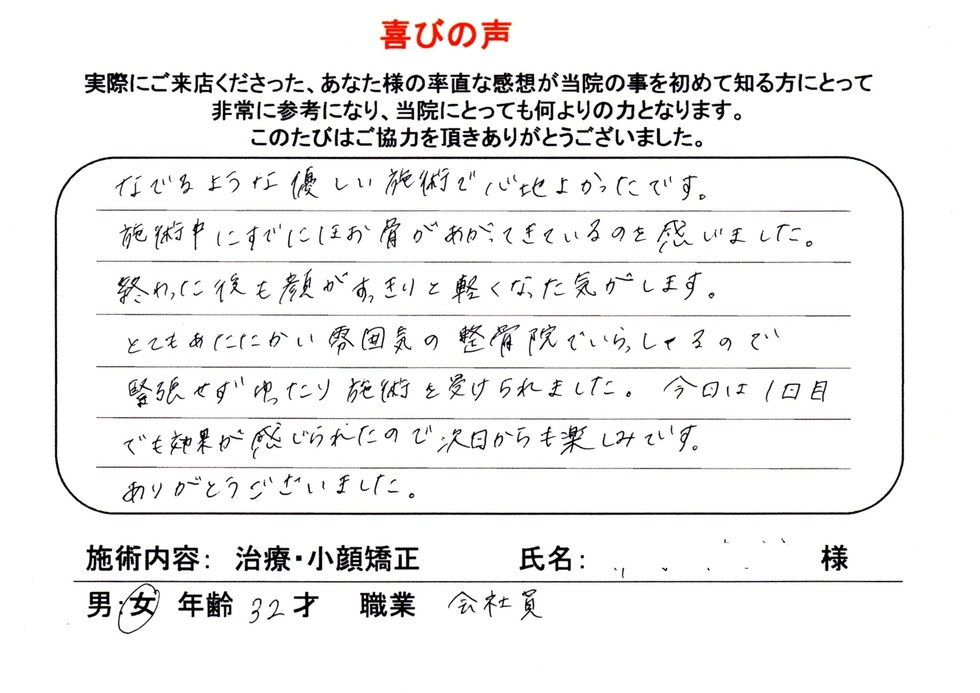 喜びの声
実際にご来店くださった、あなた様の率直な感想が当院の事を初めて知る方にとって
非常に参考になり、当院にとっても何よりの力となります。
このたびはご協力を頂きありがとうございました。
なでるような優しい施術で心地よかったです。
施術中にすでにほお骨があがってきているのを感じました。
終わった後も顔がすっきりと軽くなった気がします。
とてもあたたかい雰囲気の整骨院でいらっしゃるので
緊張せずゆったり施術を受けられました。今日は1日目
でも効果が感じられたので次日からも楽しみです。
ありがとうございました。
施術内容： 治療・小顔矯正 氏名： 様
男・女 年齢 32才 職業 会社員